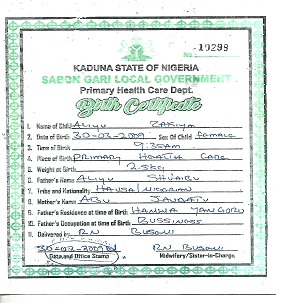 No. 10299
KADUNA STATE OF NIGERIA
SABON GARI LOCAL GOVERNMENT
Primary Health Care Dept.
Birth Certificate
1. Name of Child ALIYU ZAKIYA
2. Date of Birth 30-03-2009 Sex Of Child Female
3. Time of Birth 9:35AM
4. Place of Birth PRIMARY HEALTH CARE
5. Weight at Birth 2.5kg
6. Father's Name ALIYU SHUAIBU
7. Tribe and Nationality HAUSA/NIGERIAN
8. Mother's Name ABU
9. Father's Residence at time of Birth HANWA
10. Father's Occupation at time of Birth BUSSINESS
11. Delivered by RN BUSONI
30-03-2009 RN BUSONI
Date and Office Stamp Midwifery/Sister-in-Charge.